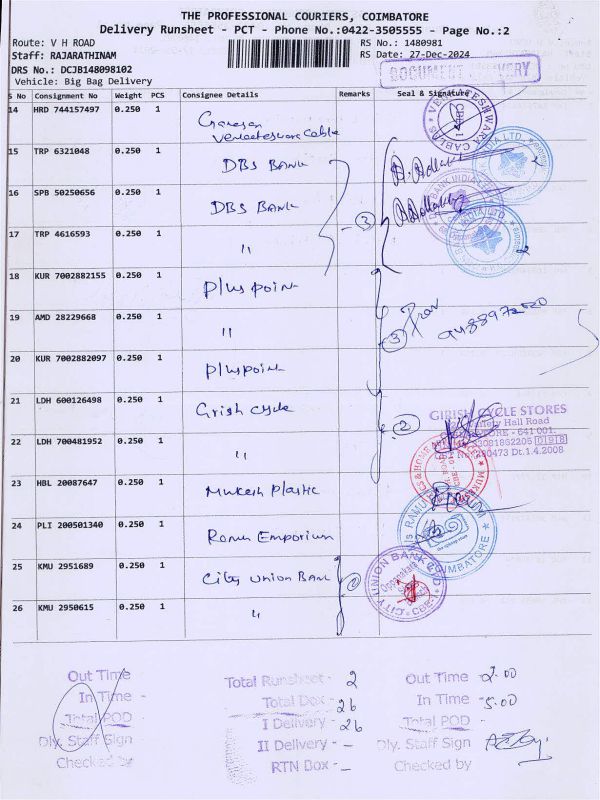 THE PROFESSIONAL COURIERS, COIMBATORE
Delivery Runsheet - PCT - Phone No.:0422-3505555 - Page No.:2
Route: V H ROAD RS No.: 1480981
Staff: RAJARATHINAM RS Date: 27-Dec-2024
DRS No.: DCJB148098102
Vehicle: Big Bag Delivery
S No Consignment No Weight PCS Consignee Details Remarks Seal & Signature
14 HRD 744157497 0.250 1 Ganesan
Venkateswara Cable
15 TRP 6321048 0.250 1 DBS BANK
16 SPB 50250656 0.250 1 DBS BANK 3
17 TRP 4616593 0.250 1 "
18 KUR 7002882155 0.250 1 Pluspoint
19 AMD 28229668 0.250 1 " 3
20 KUR 7002882097 0.250 1 Pluspoint
21 LDH 600126498 0.250 1 Girish Cycle
GIRISH CYCLE STORES
Hall Road
- 641 001.
Dt.1.4.2008
22 LDH 700481952 0.250 1 " 2
23 HBL 20087647 0.250 1 Mukesh Plastic
24 PLI 200501340 0.250 1 Ramu Emporium
COIMBATORE
25 KMU 2951689 0.250 1 City Union Bank
CITY UNION BANK
26 KMU 2950615 0.250 1 "
Out Time
In Time -
Total POD -
Dly. Staff Sign
Checked by
Total Runsheet - 2
Total Dox - 26
I Delivery - 26
II Delivery - -
RTN Dox - -
Out Time - 2.00
In Time - 5.00
Total POD -
Dly. Staff Sign
Checked by